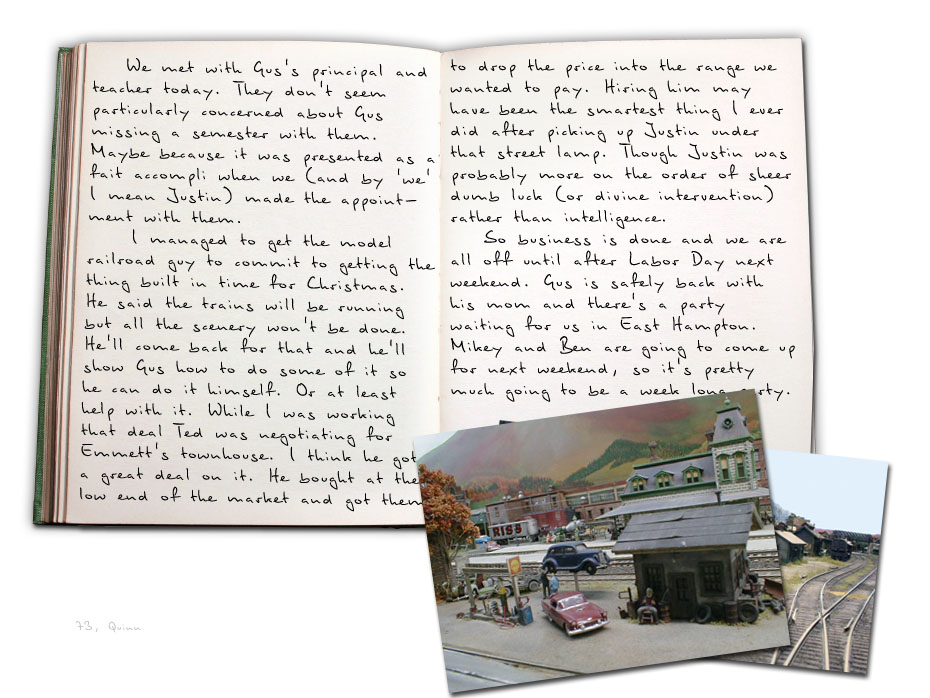 We met with Gus's principal and
teacher today. They don't seem
particularly concerned about Gus
missing a semester with them.
Maybe because it was presented as a
fait accompli when we (and by 'we'
I mean Justin) made the appoint-
ment with them.
I managed to get the model
railroad guy to commit to getting the
thing built in time for Christmas.
He said the trains will be running
but all the scenery won't be done.
He'll come back for that and he'll
show Gus how to do some of it so
he can do it himself. Or at least
help with it. While I was working
that deal Ted was negotiating for
Emmett's townhouse. I think he got
a great deal on it. He bought at the
low end of the market and got them
to drop the price into the range we
wanted to pay. Hiring him may
have been the smartest thing I ever
did after picking up Justin under
that street lamp. Though Justin was
probably more on the order of sheer
dumb luck (or divine intervention)
rather than intelligence.
So business is done and we are
all off until after Labor Day next
weekend. Gus is safely back with
his mom and there's a party
waiting for us in East Hampton.
Mikey and Ben are going to come up
for next weekend, so it's pretty
much going to be a week long party.
RISS
73, Quinn